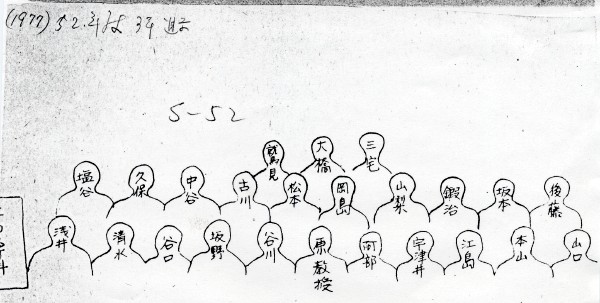 (1977) 52.
S-52
鷲見 大橋 三宅
塩谷 久保 中谷 古川 松本 岡島 山梨 鍜治 坂本 後藤
浅井 清水 谷口 坂野 谷川 原教授 阿部 宇津井 江島 本山 山口